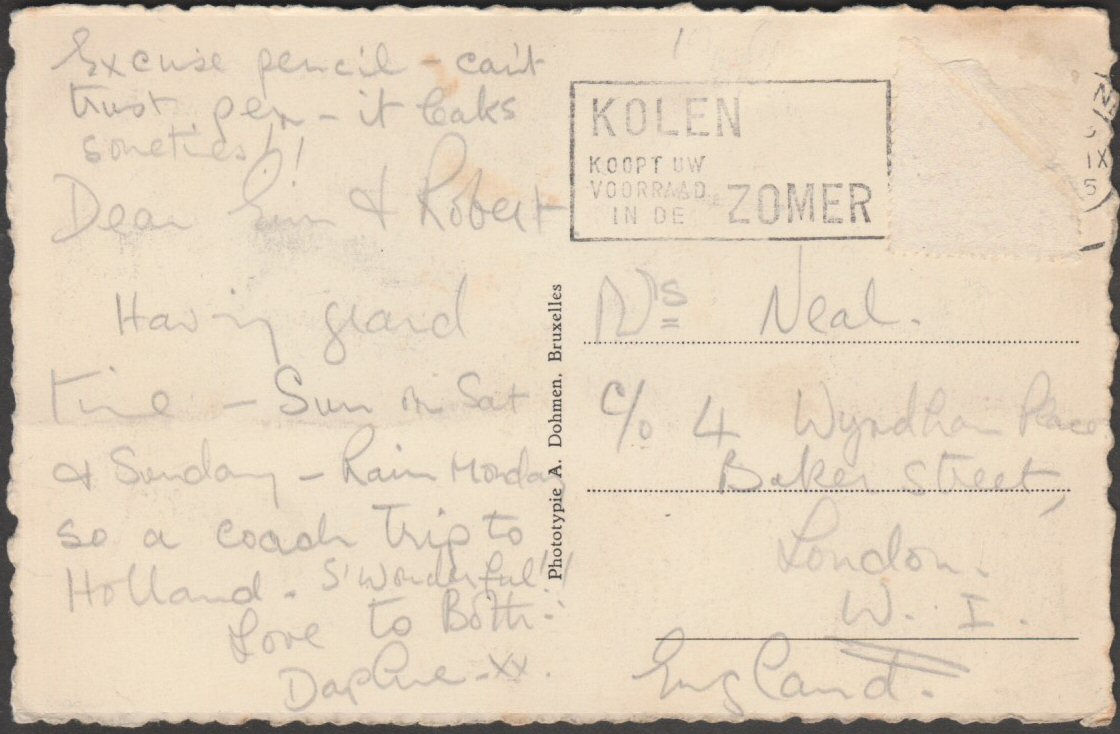 Excuse pencil - can't
trust pen - it leaks
sometimes!!
Dear & Robert
Having grand
time - Sun on Sat
& Sunday - Rain Monday
so a coach trip to
Holland. S'Wonderful!!
Love to Both.
Daphne - xx.
Phototypie A. Dohmen, Bruxelles
KOLEN
KOOPT UW
VOORRAAD
IN DE ZOMER
IX
5
Mrs Neal.
c/o 4 Wyndham Place
Baker Street,
London.
W. I.
England.